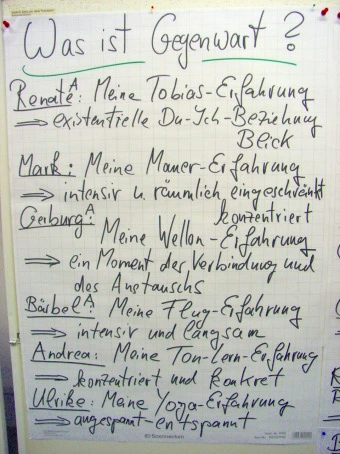 Was ist Gegenwart?
Renate A: Meine Tobias-Erfahrung
⇒ existentielle Du-Ich-Beziehung
Blick
Mark: Meine Mauer-Erfahrung
⇒ intensiv u. räumlich eingeschränkt
konzentriert
Gerburg A:
Meine Wellen-Erfahrung
⇒ ein Moment der Verbindung und
des Austauschs
Bärbel A: Meine Flug-Erfahrung
⇒ intensiv und langsam
Andrea: Meine Ton-Lern-Erfahrung
⇒ konzentriert und konkret
Ulrike: Meine Yoga-Erfahrung
⇒ angespannt-entspannt